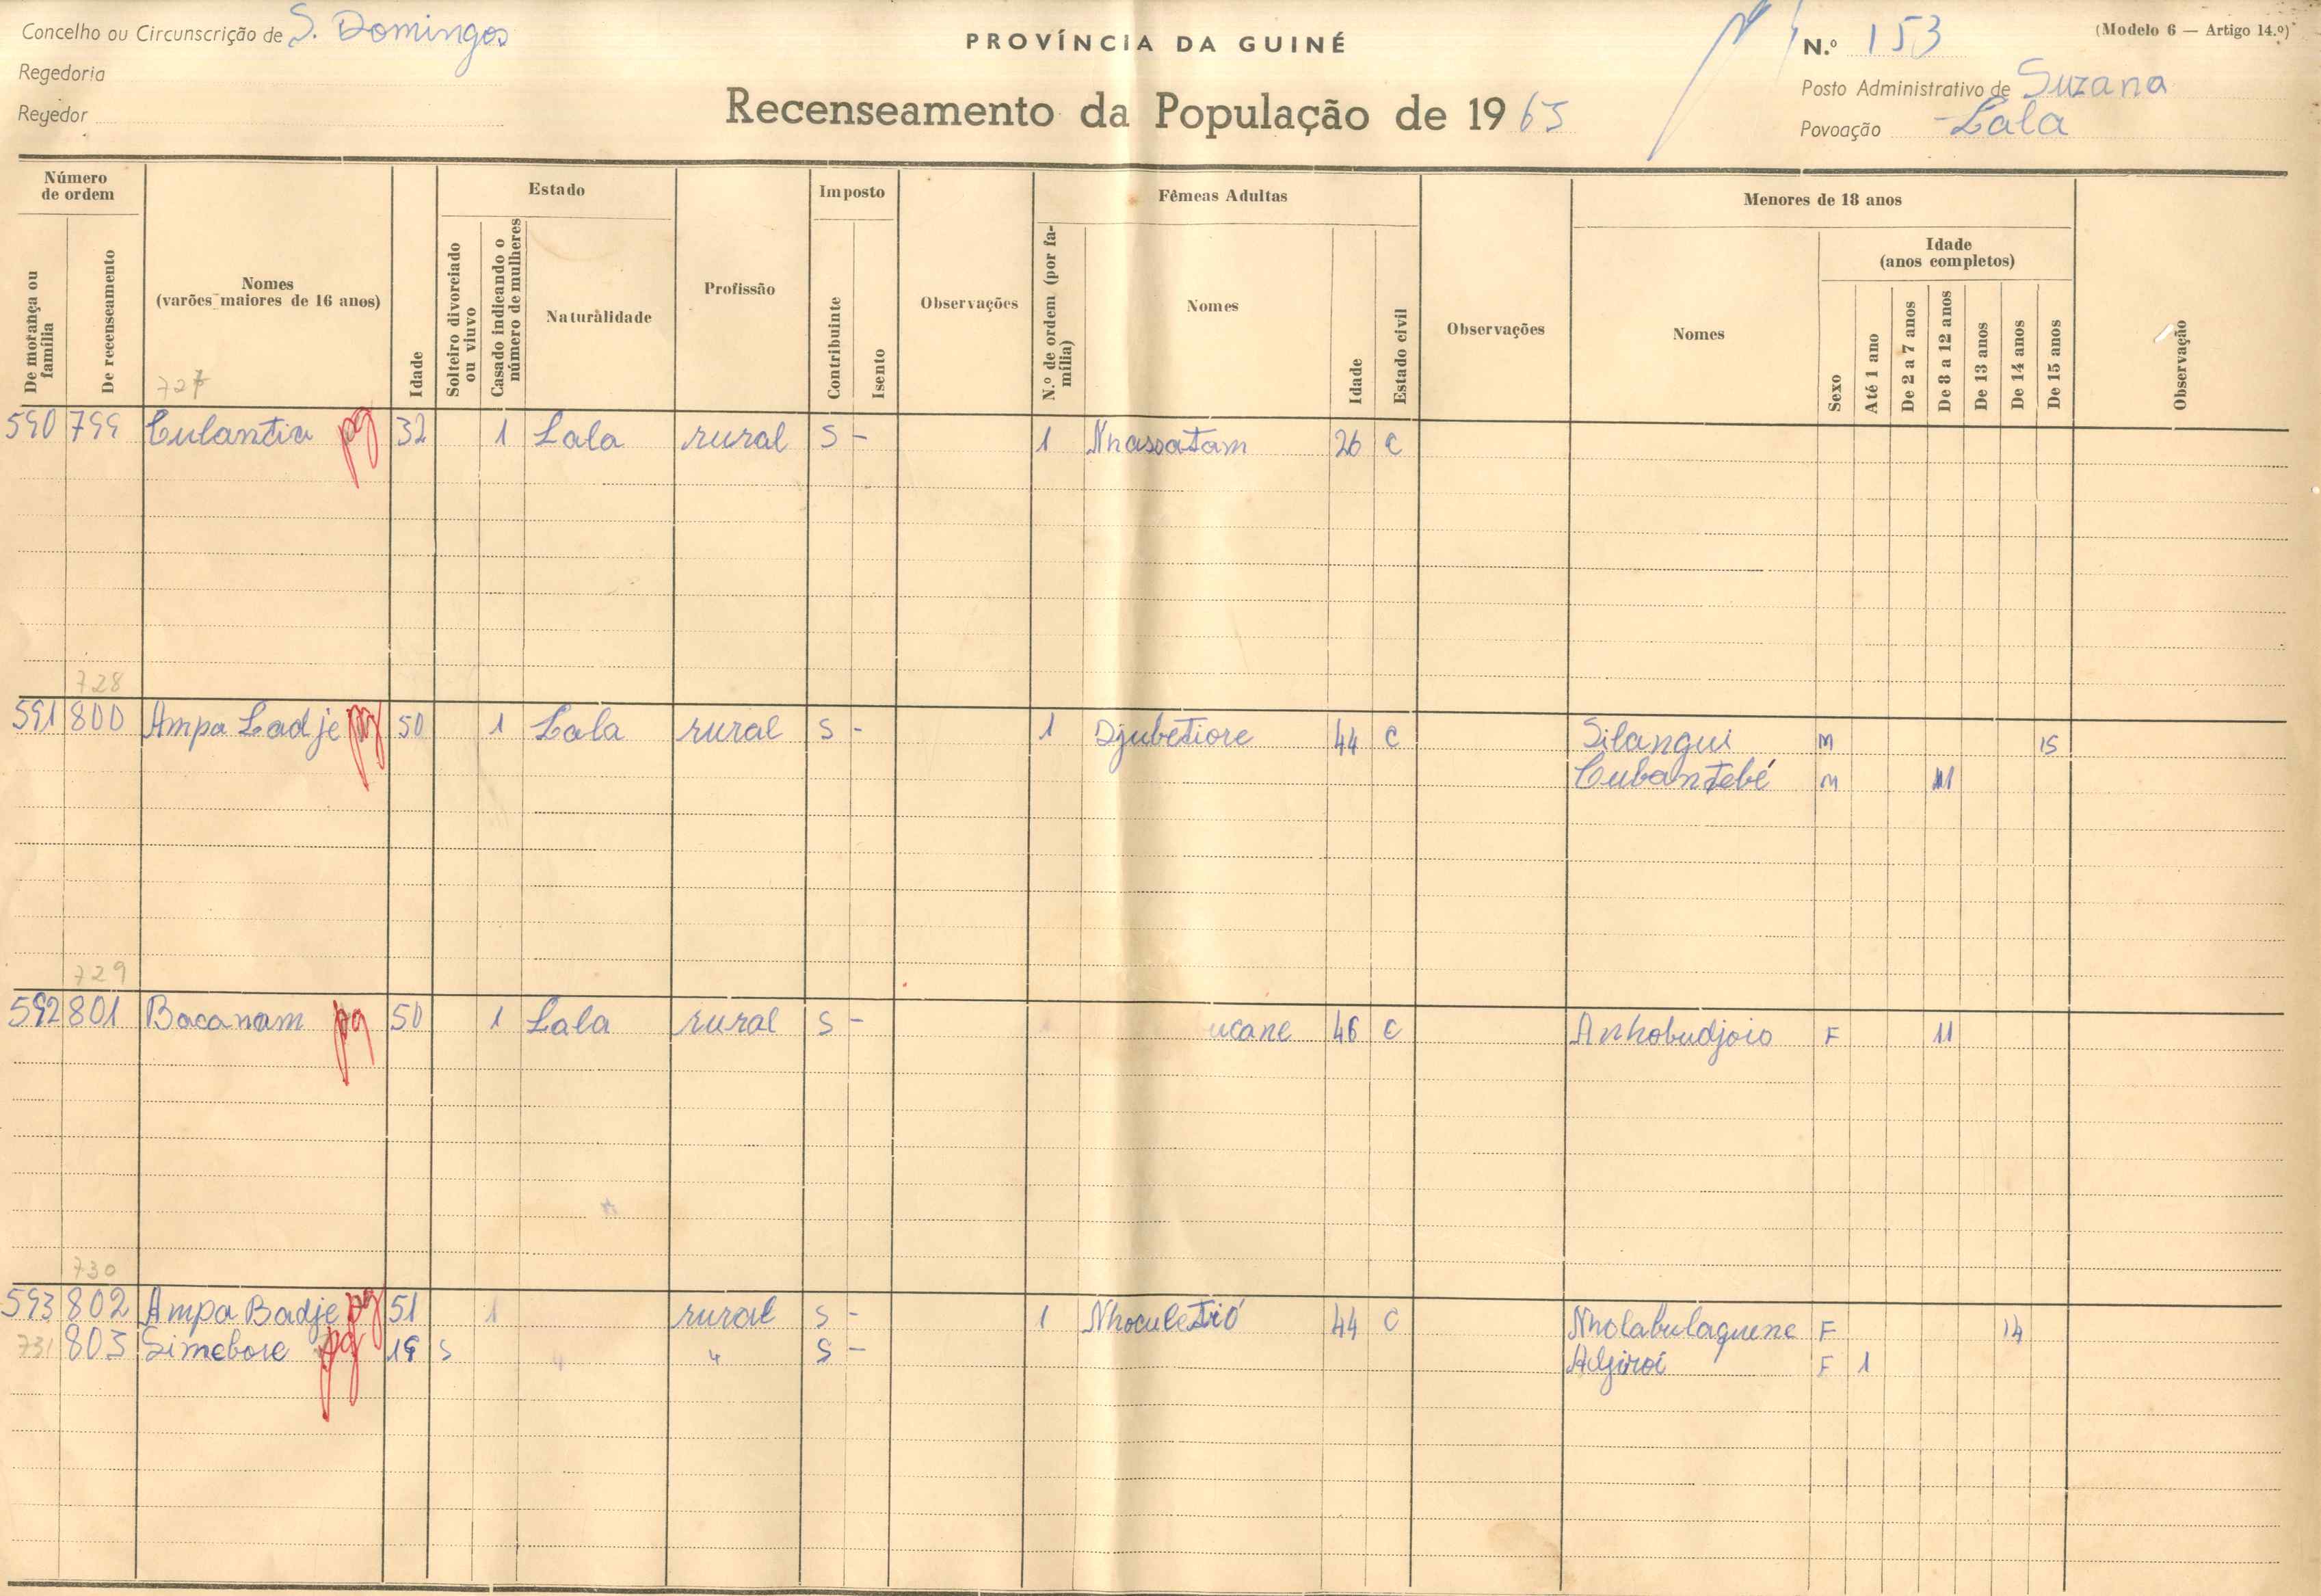 Concelho ou Circunscrição de S. Domingos
Regedoria
Regedor
PROVÍNCIA DA GUINÉ
Recenseamento da População de 1965
(Modelo 6 — Artigo 14.º)
N.º 153
Posto Administrativo de Suzana
Povoação Lala
Número de ordem
De morança ou família
De recenseamento
Nomes
(varões maiores de 16 anos)
Idade
Estado
Solteiro divorciado ou viuvo
Casado indicando o número de mulheres
Naturalidade
Profissão
Imposto
Contribuinte
Isento
Observações
Fêmeas Adultas
N.º de ordem (por família)
Nomes
Idade
Estado civil
Observações
Menores de 18 anos
Nomes
Sexo
Idade
(anos completos)
Até 1 ano
De 2 a 7 anos
De 8 a 12 anos
De 13 anos
De 14 anos
De 15 anos
Observação
727
590 799 Culantia pg 32 1 Lala rural S - 1 Nhassatam 26 C
728
591 800 Ampa Ladje pg 50 1 Lala rural S - 1 Djubetiore 44 C Silangui M 15
Cubantebé M 11
729
592 801 Bacanam pg 50 1 Lala rural S - ucane 46 C Anhobudjoio F 11
730
593 802 Ampa Badje pg 51 1 rural S - 1 Nhoculetió 44 C Nholabulaguene F 14
731 803 Simebore pg 19 S " " S - F 1